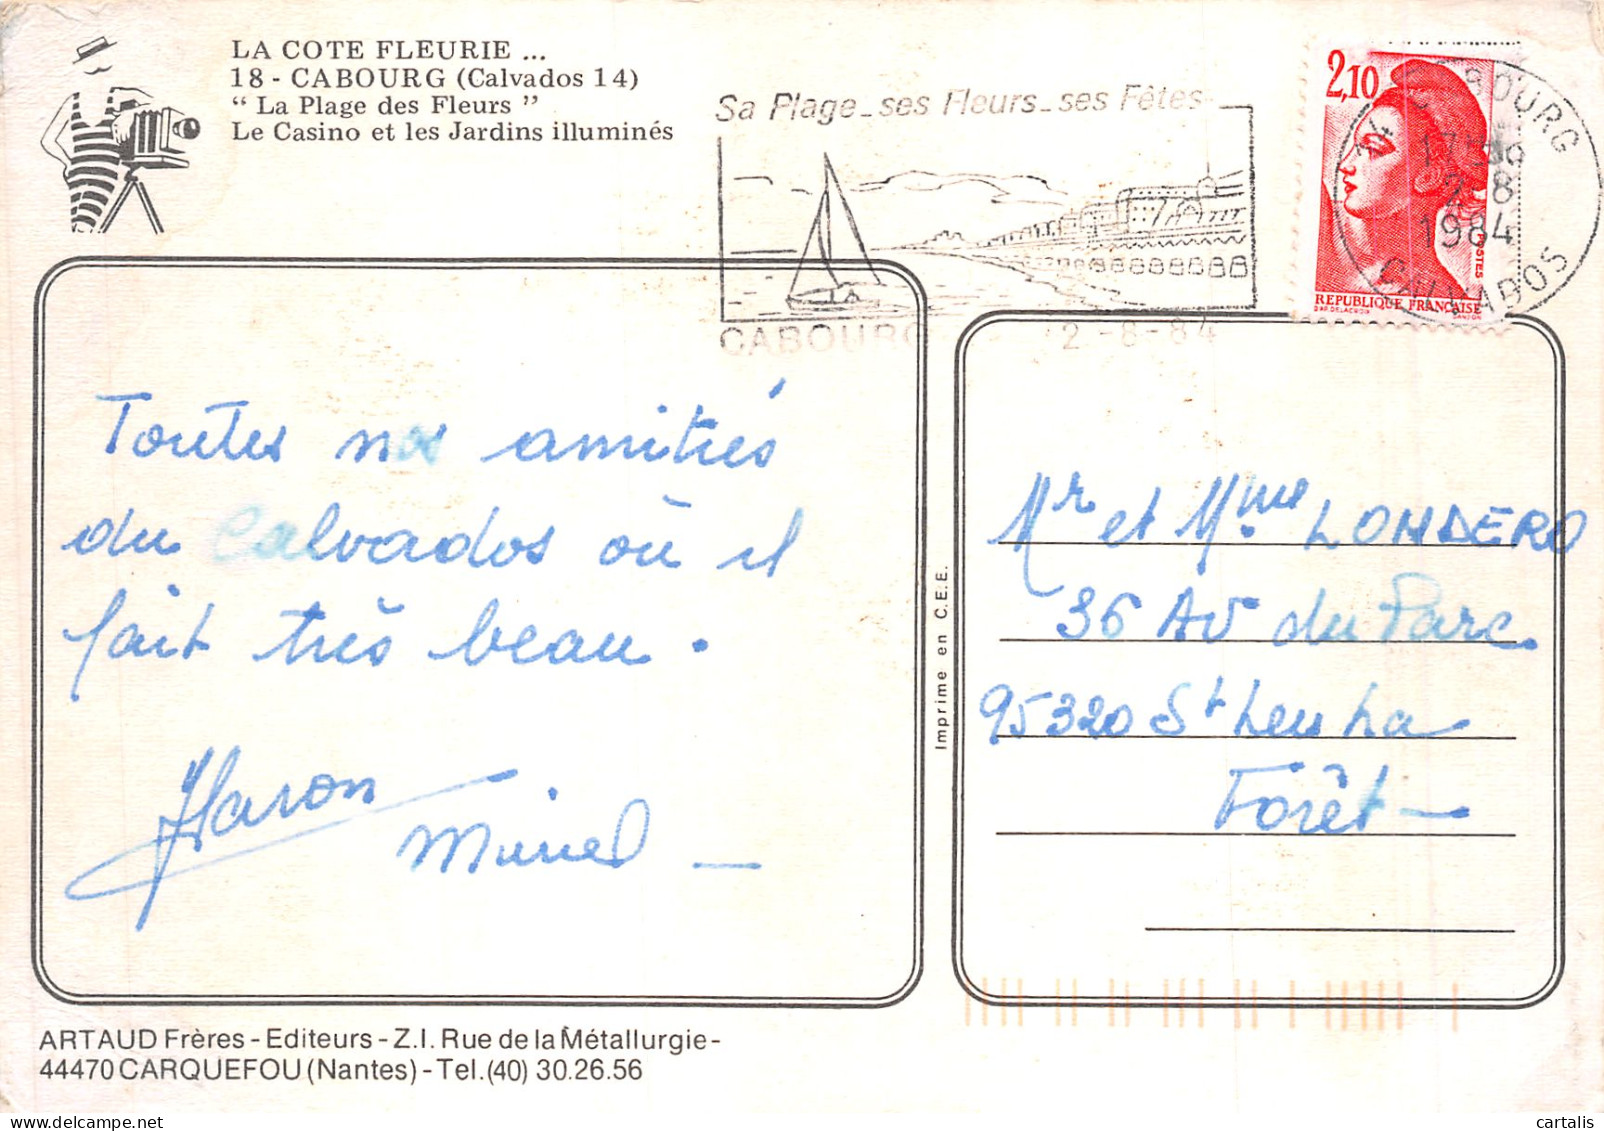 LA COTE FLEURIE ...
18 - CABOURG (Calvados 14)
“ La Plage des Fleurs ”
Le Casino et les Jardins illuminés
Sa Plage_ses Fleurs_ses Fêtes
CABOURG 2 -8-84
2,10
POSTES
REPUBLIQUE FRANÇAISE
D'AP. DELACROIX GANDON
14 CABOURG
17H
2 8
1984
CALVADOS
Toutes nos amitiés
du Calvados où il
fait très beau.
Muriel _
Imprime en C.E.E.
Mr et Mme LONDERO
36 AV du Parc
95320 St Leu La
Forêt —
ARTAUD Frères - Editeurs - Z.I. Rue de la Métallurgie -
44470 CARQUEFOU (Nantes) - Tel. (40) 30.26.56
cartalis